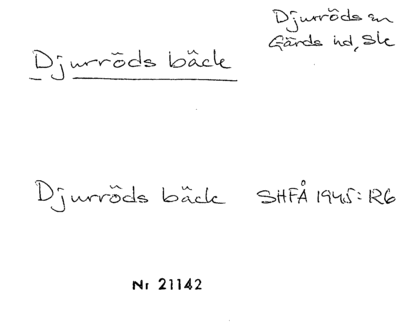 Djurröds sn
Gärds hd, Sk
Djurröds bäck
Djurröds bäck SHFÅ 1945: 126
Nr 21142